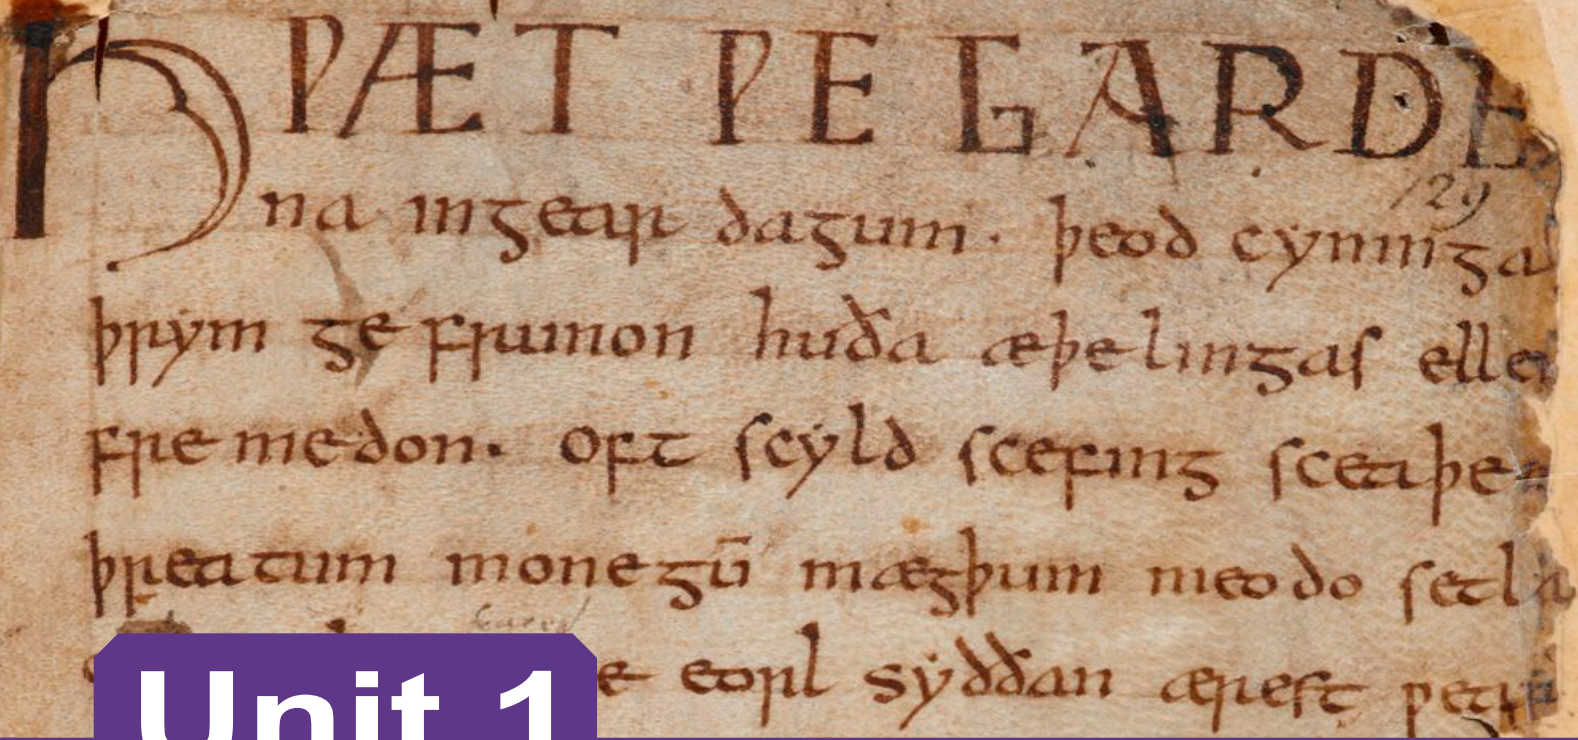 HǷÆT ǷE GARDE
na ingear dagum · þeod cyninga
þrym ge frunon huða æþelingas elle
fremedon. Oft scyld scefing sceaþe
þreatum monegū mægþum meodo setla
129
e eorl syððan ærest ƿear
Unit 1